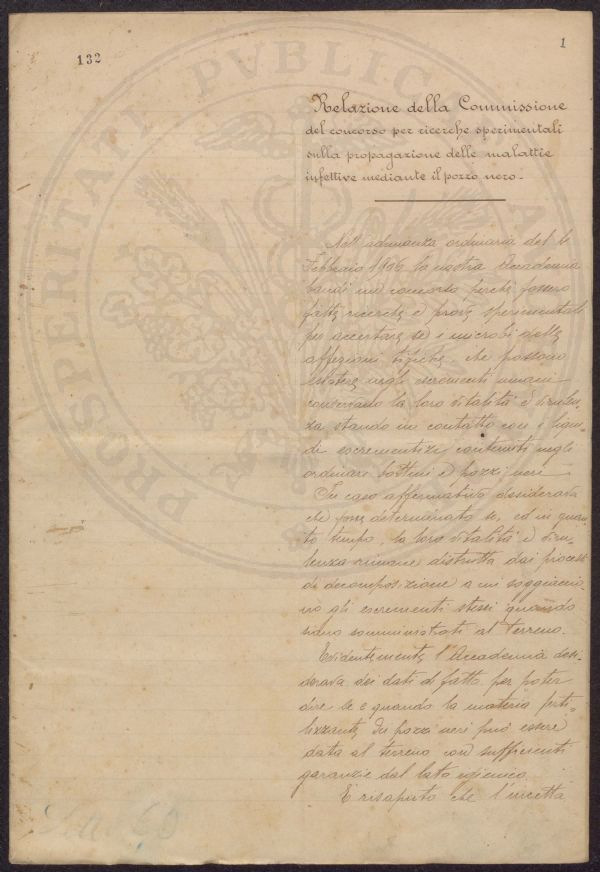 132
1
PROSPERITATI PVBLICAE A
Relazione della Commissione
del concorso per ricerche sperimentali
sulla propagazione delle malattie
infettive mediante il pozzo nero.
Nell'adunanza ordinaria del 4
Febbraio 1906 la nostra Accademia
bandì un concorso perchè fossero
fatte ricerche e prove sperimentali
per accertare se i microbi delle
affezioni tifiche, che possono
esistere negli escrementi umani
conservano la loro vitalità e virulen-
za stando in contatto con i liqui-
di escrementizi contenuti negli
ordinari bottini e pozzi neri
In caso affermativo desiderava
che fosse determinato se, ed in quan-
to tempo, la loro vitalità e viru-
lenza rimane distrutta dai processi
di decomposizione a cui soggiaccia-
no gli escrementi stessi quando
siano somministrati al terreno.
Evidentemente l'Accademia desi-
derava dei dati di fatto per poter
dire se e quando la materia ferti-
lizzante dei pozzi neri può essere
data al terreno con sufficienti
garanzie dal lato igienico.
E' risaputo che l'incetta